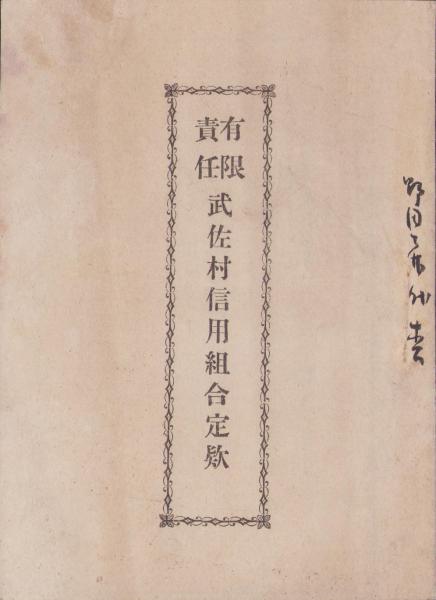 有限
責任
武佐村信用組合定款